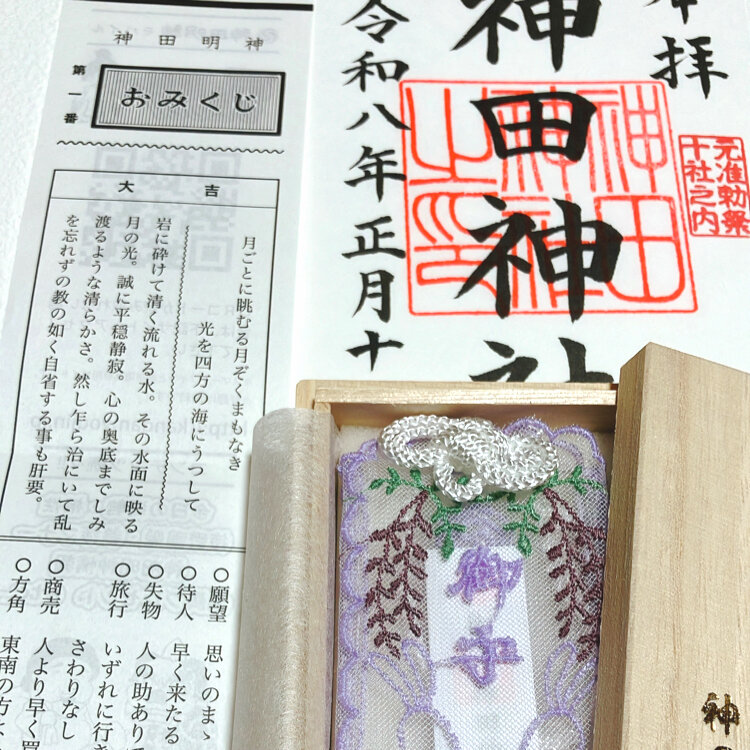 神田明神
第一番
おみくじ
大吉
月ごとに眺むる月ぞくまもなき
光を四方の海にうつして
岩に砕けて清く流れる水。その水面に映る
月の光。誠に平穏静寂。心の奥底までしみ
渡るような清らかさ。然し乍ら治にいて乱
を忘れずの教の如く自省する事も肝要。
○願望 思いのまゝ
○待人 早く来たる
○失物 人の助あり
○旅行 いずれに行き
○商売 さわりなし
人より早く買
○方角 東南の方よ
拝
元准勅祭
十社之内
神田神社
神田
神社
之印
令和八年正月十
御守
神